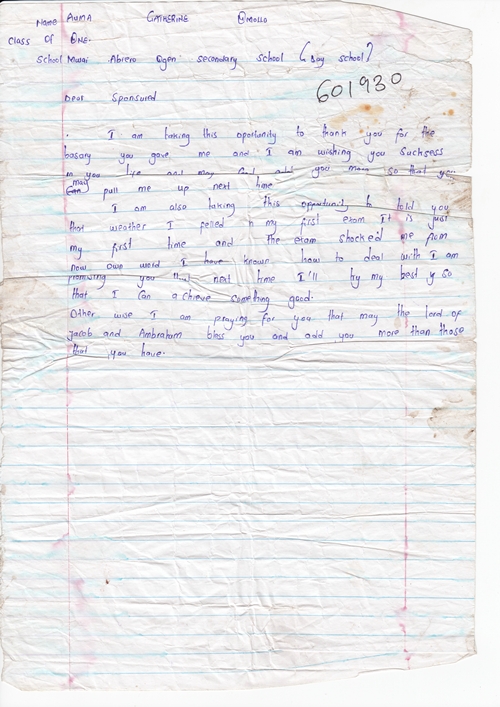 Name AUMA CATHERINE @MOLLO
Class Of ONE.
School Mwai Abrero Ogen secondary school (Day school)
601930
Dear Sponsored
I am taking this oportunity to thank you for the
basary you gave me and I am wishing you Suchsess
in you life and may God add you more so that you
may pull me up next time
I am also taking this opportunity to told you
that weather I feiled in my first exam It is just
my first time and the exam shocked me from
now own word I have known how to deal with I am
promising you that next time I'll try my best so
that I can achieve something good.
Other wise I am praying for you that may the lord of
Jacob and Ambraham bless you and add you more than those
that you have.